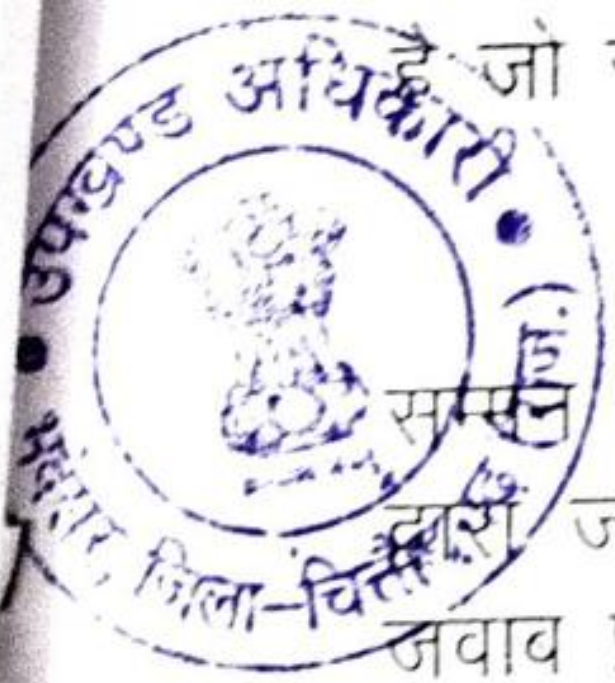 उपखण्ड अधिकारी
भदेसर, जिला-चित्तौड़
है जो
सम्मन
द्वारा
जवाब